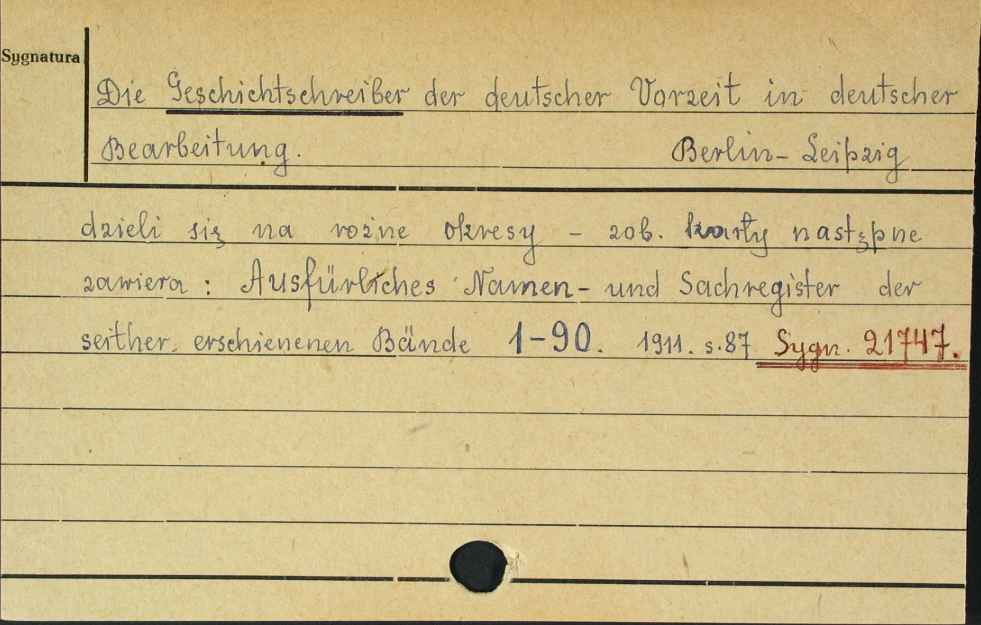 Sygnatura
Die Geschichtschreiber der deutscher Vorzeit in deutscher
Bearbeitung. Berlin-Leipzig
dzieli się na rożne okresy - zob. karty następne
zawiera: Ausfürliches Namen- und Sachregister der
seither. erschienenen Bände 1-90. 1911. s.87 Sygn. 21747.